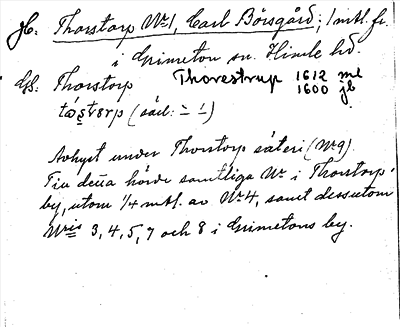 Jb. Thorstorp No 1, Carl Börsgård; 1 mtl. fr.
i Grimeton sn. Himle hd.
Gs. Thorstorp Thorestrup 1612 ml
1600 jb
Avhyst under Thorstorp säteri (No 9).
Till dessa hörde samtliga No i Thorstorp
by, utom 1/4 mtl. av No 4, samt dessutom
Nris 3, 4, 5, 7 och 8 i Grimetons by.